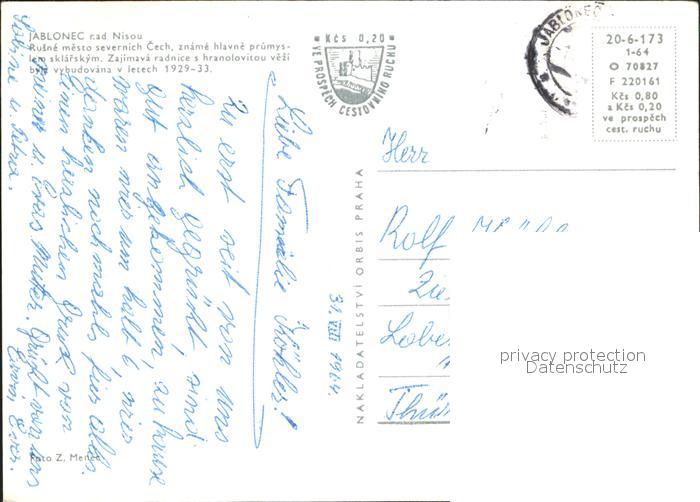 JABLONEC nad Nisou
Rušné město severních Čech, známé hlavně průmys-
lem sklářským. Zajímavá radnice s hranolovitou věží
byla vybudována v letech 1929–33.
Foto Z. Menec
Kčs 0,20
VE PROSPĚCH CESTOVNÍHO RUCHU
JABLONEC
20-6-173
1-64
O 70827
F 220161
Kčs 0,80
a Kčs 0,20
ve prospěch
cest. ruchu
NAKLADATELSTVÍ ORBIS PRAHA
31. VIII 1964.
Liebe Familie Köhler!
Zu erst seit von uns
herzlich gegrüßt, sind
gut angekommen, zu hause
waren wir um halb 6, wir
danken nochmals für alles.
einen herzlichen Gruß von
meiner u. Evas Mutter. Grüßt von uns
Sabine u. Petra.
Herr
Rolf
Thür
privacy protection
Datenschutz